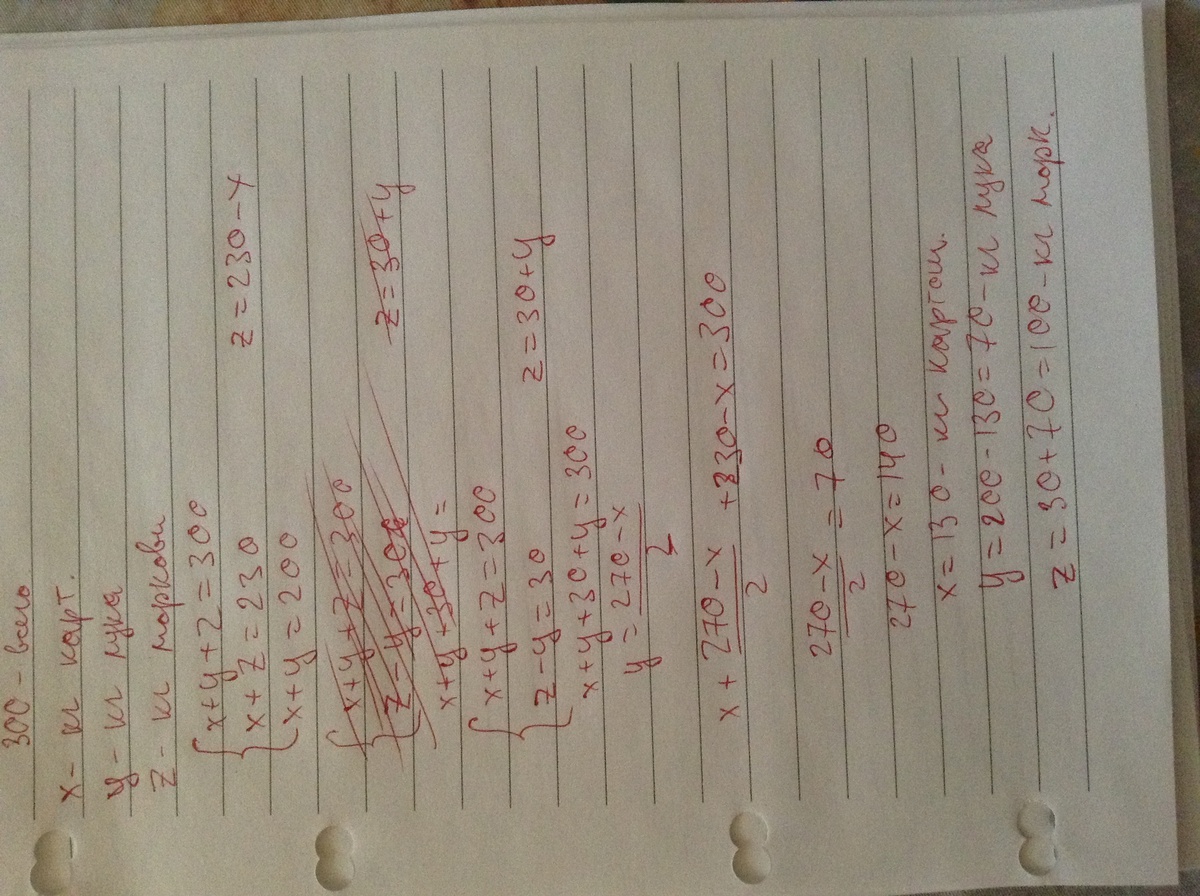 300 - всего
x - кг карт.
y - кг лука
z - кг моркови
x+y+z=300
x+z=230 z=230-x
x+y=200
x+y+z=300
z-y=300 z=30+y
x+y+30+y=
x+y+z=300
z-y=30 z=30+y
x+y+30+y=300
y=270-x/2
x+270-x/2+230-x=300
270-x/2=70
270-x=140
x=130-кг картош.
y=200-130=70-кг лука
z=30+70=100-кг морк.